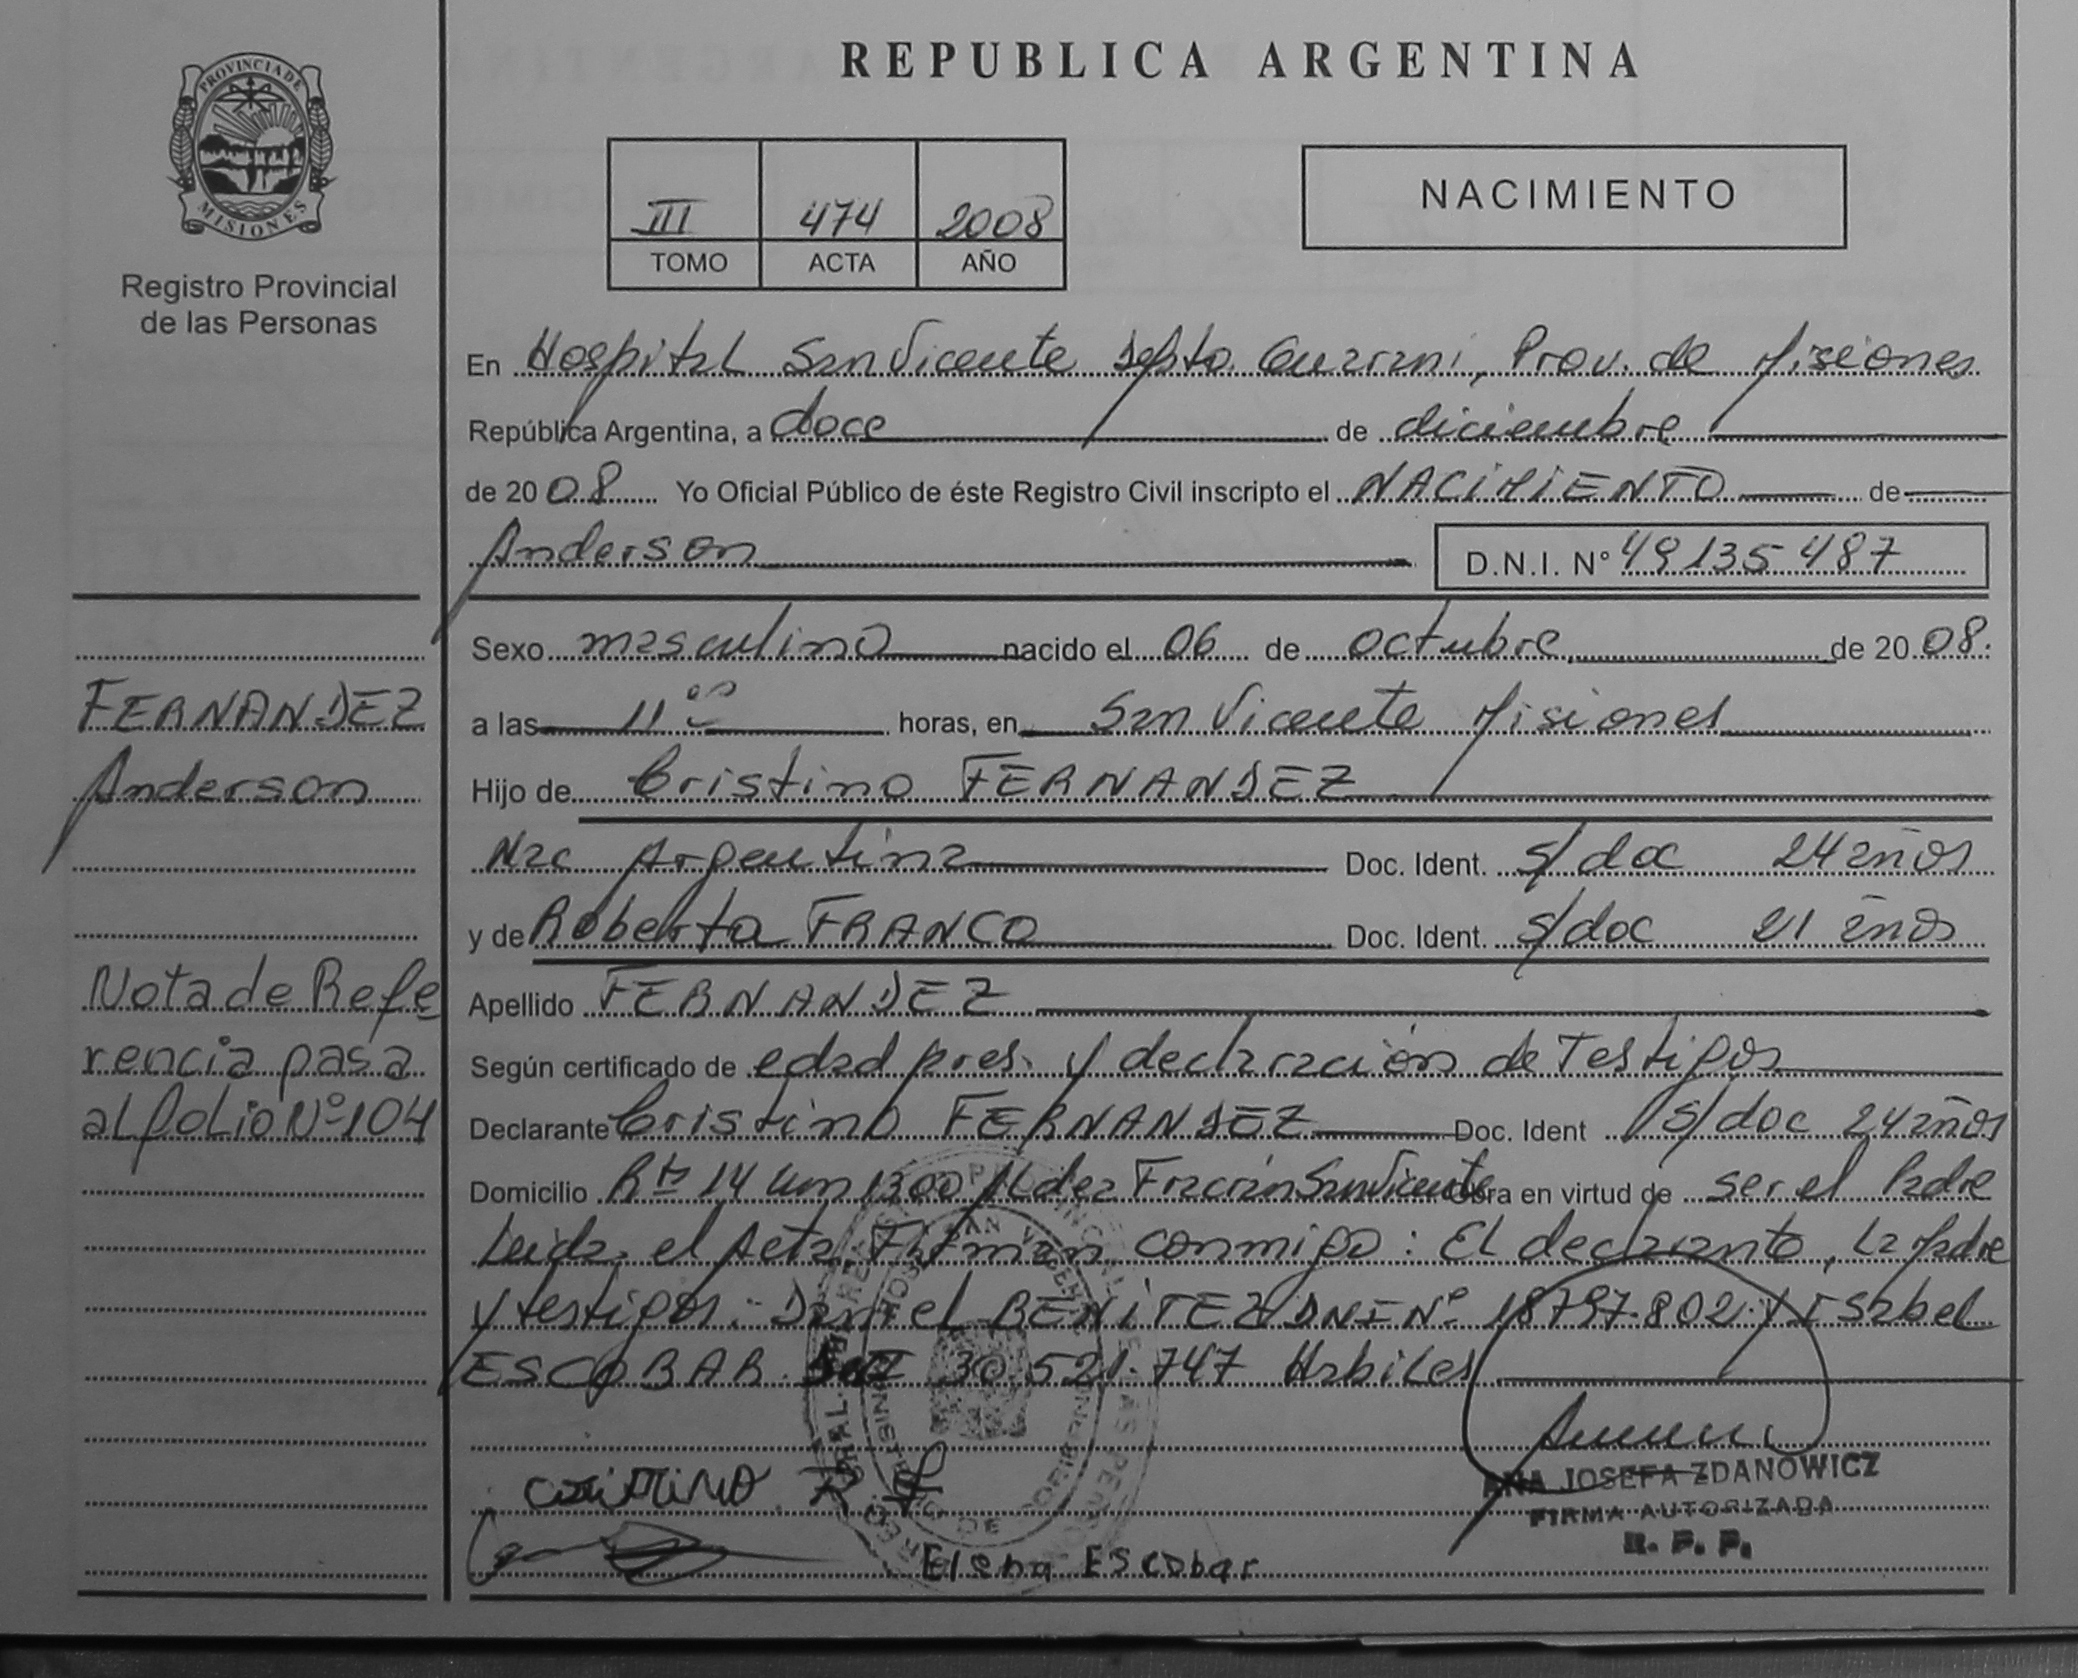 REPUBLICA ARGENTINA
PROVINCIA DE
MISIONES
Registro Provincial
de las Personas
III 474 2008
TOMO ACTA AÑO
NACIMIENTO
En Hospital San Vicente Dpto. Guarani, Prov. de Misiones
República Argentina, a doce de diciembre
de 2008 Yo Oficial Público de éste Registro Civil inscripto el NACIMIENTO de
Anderson D.N.I. Nº 49135487
Sexo masculino nacido el 06 de octubre de 2008.
a las 11 horas, en San Vicente Misiones
Hijo de Cristino FERNANDEZ
Nac Argentina Doc. Ident. s/doc 24 años
y de Roberta FRANCO Doc. Ident. s/doc 21 años
Apellido FERNANDEZ
Según certificado de edad pres. y declaración de Testigos
Declarante Cristino FERNANDEZ Doc. Ident s/doc 24 años
Domicilio Rta 14 km 1300 Aldea Fracrán San Vicente Obra en virtud de ser el Padre
Leida el Acta Firman conmigo: El declarante, la Madre
y testigos: Daniel BENITEZ DNI Nº 18797.802 y Isabel
ESCOBAR DNI 30.521.747 Habiles
FERNANDEZ
Anderson
Nota de Refe
rencia pasa
al folio Nº 104
R F
Elena Escobar
ANA JOSEFA ZDANOWICZ
FIRMA AUTORIZADA
R. P. P.